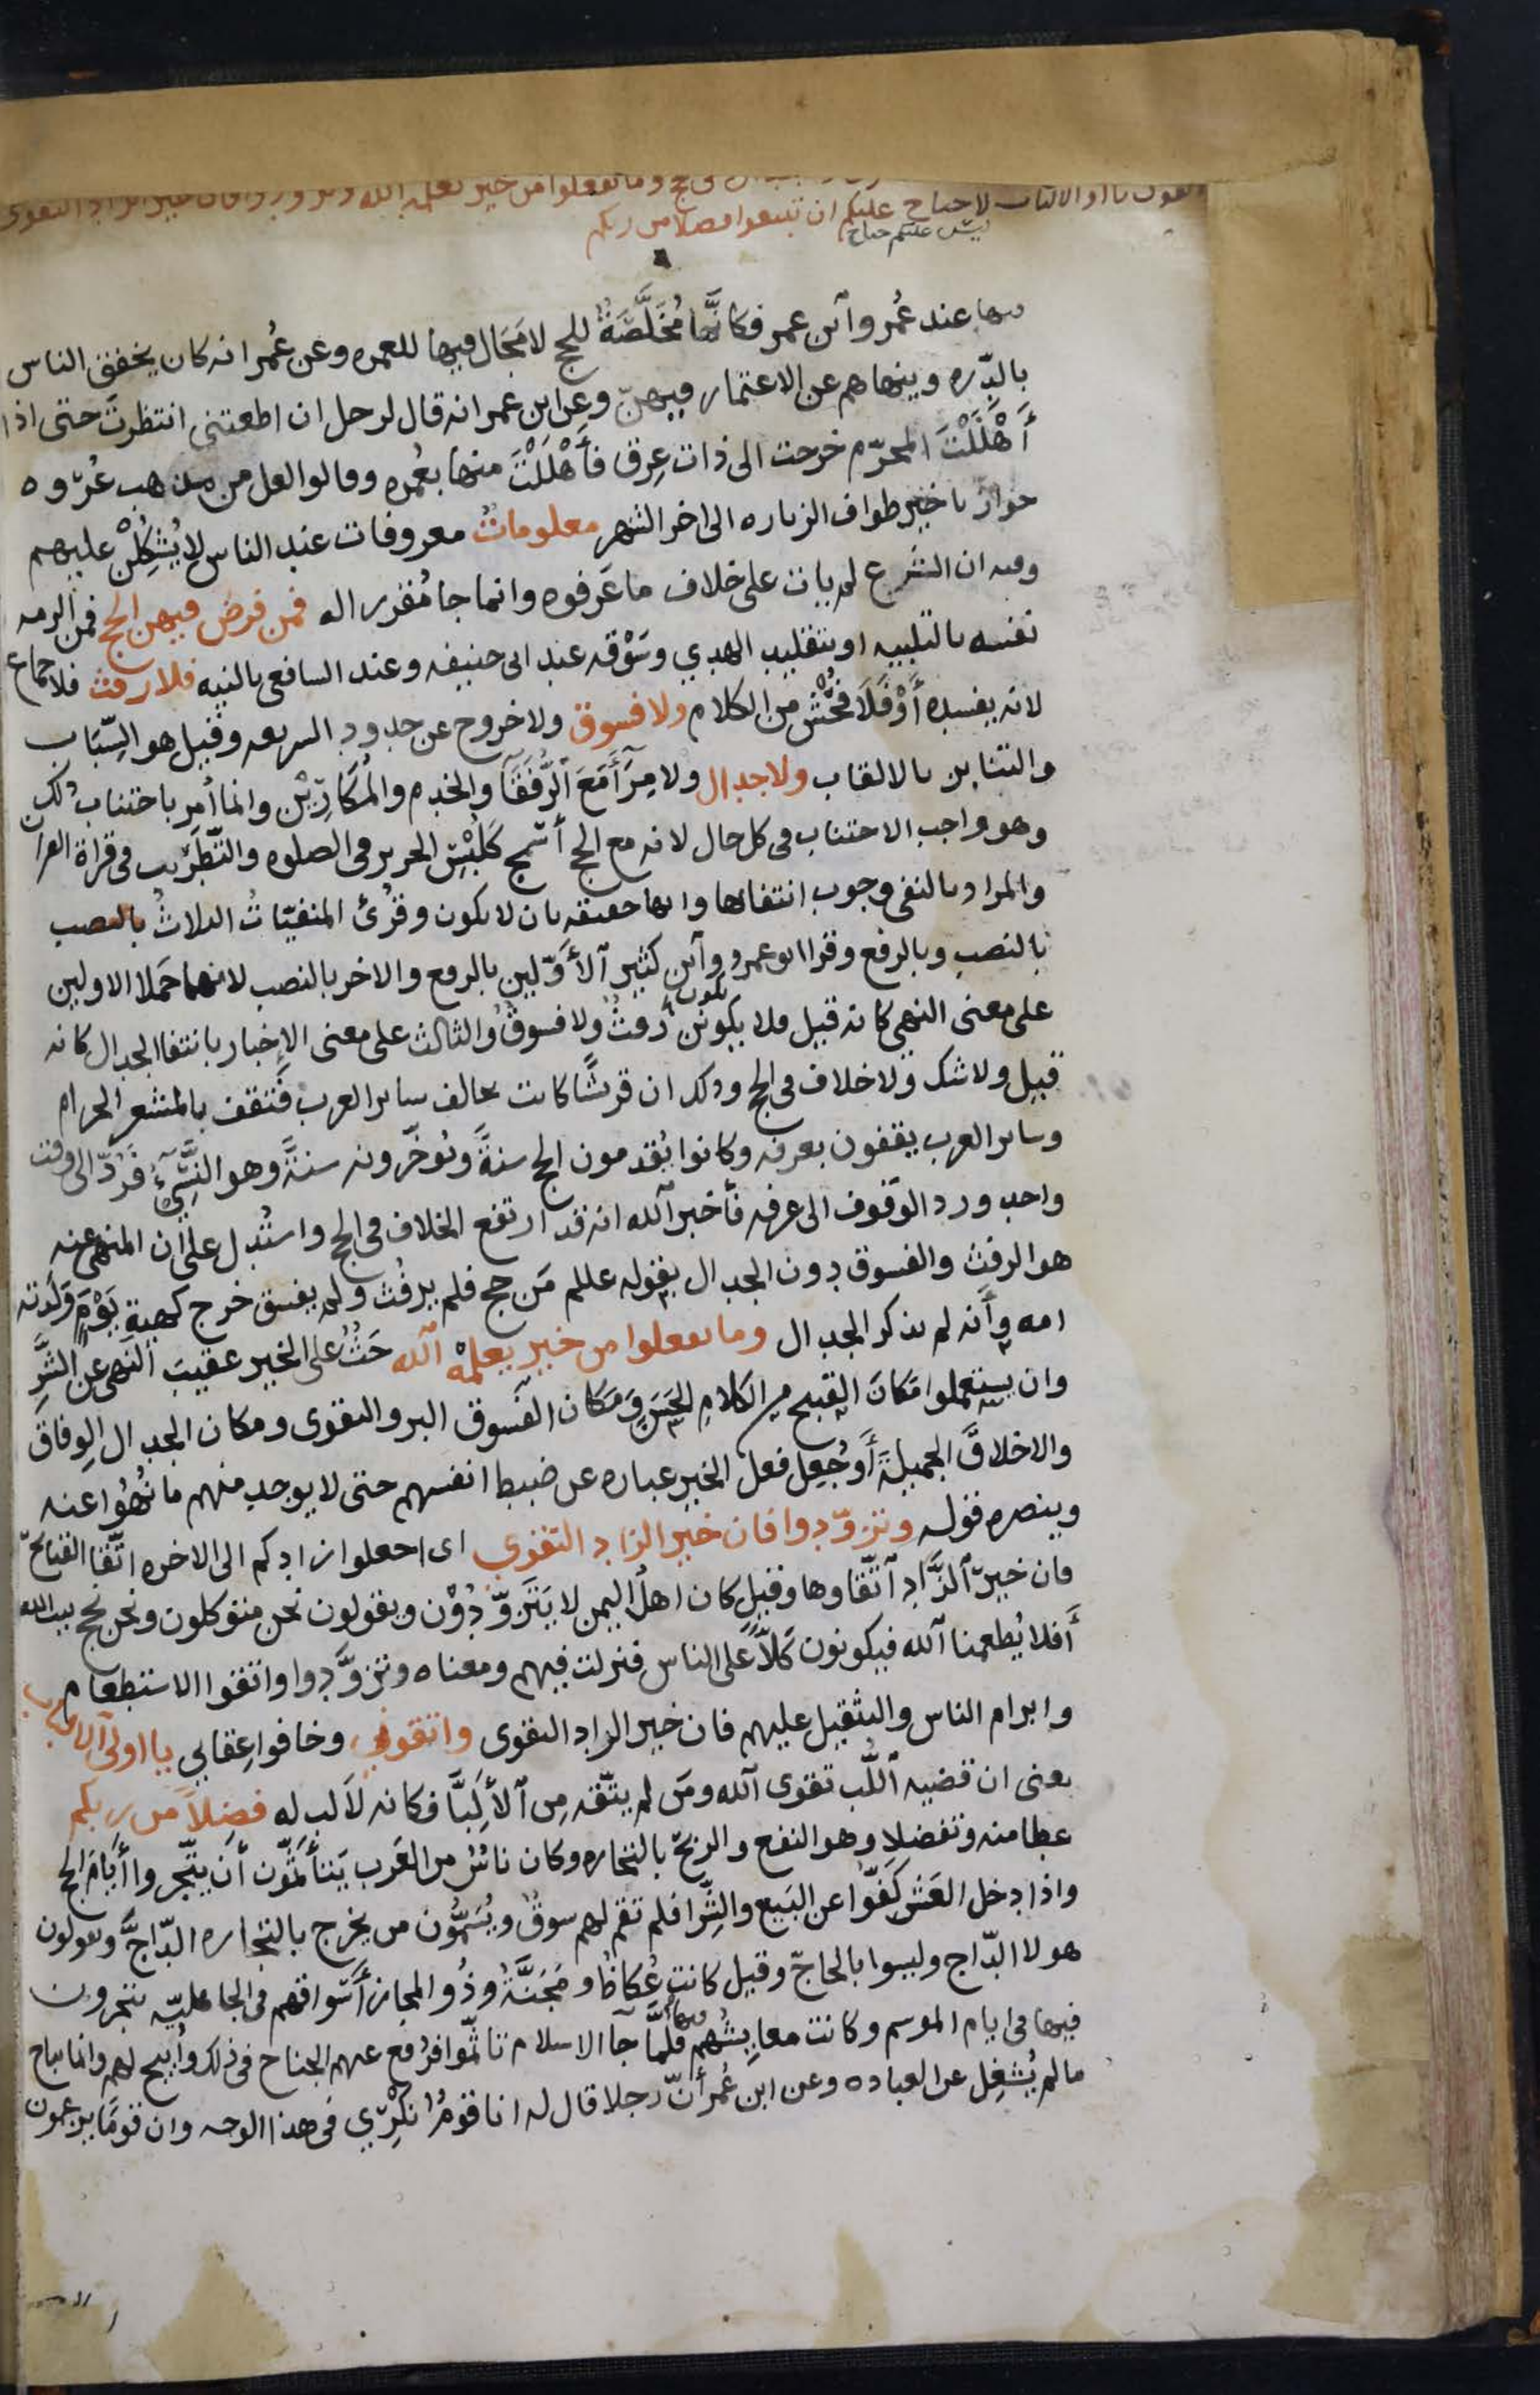 وما تفعلوا من خير يعلمه الله وتزودوا فان خير الزاد التقوى
واتقون يا اولى الالباب لا جناح عليكم ان تبتغوا فضلا من ربكم
ليس عليكم جناح
فيها عند عُمر وآبن عمر فكانَّها مُخَلَّصَةٌ للحج لا مَجَال فيها للعمره وعن عُمر انه كان يخفق الناس
بالدِّره وينهاهم عن الاعتمار فيهنّ وعن ابن عمر انه قال لرجل ان اطعتنى انتظرتَ حتى اذا
أَهْلَلْتَ المحرّم خرجت الى ذات عِرق فأَهْلَلْتَ منها بعُمره وقالوا لعل من مذهب عُرْوه
جواز تاخير طواف الزياره الى اخر الشهر معلوماتٌ معروفات عند الناس لا يُشْكِلْنَ عليهم
وفيه ان الشرع لم يات على خلاف ما عَرفوه وانما جا مُقررا له فمن فرض فيهن الحج فمن الزمه
نفسه بالتلبيه او بتقليد الهدي وسَوْقه عند ابى حنيفه وعند الشافعى بالنيه فلا رفث فلا جماع
لانه يفسده أَوْ فَلَا فُحْش من الكلام ولا فسوق ولا خروج عن حدود الشريعه وقيل هو السِّبَاب
والتنابز بالالقاب ولا جدال ولا مِرَآء مَعَ الرُّفَقَآ والخدم والمُكَارِيْن وانما أُمِر باجتناب ذلك
وهو واجب الاجتناب فى كل حال لانه مع الحج أسمج كَلُبْسِ الحرير فى الصلوه والتَّطْرِيب فى قراة القران
والمراد بالنفى وجوب انتفائها وانها حقيقه بان لا تكون وقُرئ المنفيّاتُ الثلاثُ بالنصب
بالنصب وبالرفع وقرا ابو عمرو وآبن كثير الأَوَّلين بالرفع والاخر بالنصب لانهما حَمَلا الاولين
على معنى النهى كانه قيل فلا يكونن رفثٌ ولا فسوقٌ والثالث على معنى الإخبار بانتفا الجدال كانه
قيل ولا شك ولا خلاف فى الحج وذلك ان قريشًا كانت تخالف ساير العرب فَتقف بالمشعر الحرام
وساير العرب يقفون بعرفه وكانوا يُقدمون الحج سنةً ويُؤخّرونه سنةً وهو النَّسِيْءُ فَرُدّ الى وقت
واحد ورد الوقوف الى عرفه فأخبر آلله انه قد ارتفع الخلاف فى الحج واستُدل على ان المنهى عنه
هو الرفث والفسوق دون الجدال بقوله عللم مَن حج فلم يرفُث ولم يفسق خرج كهيئةِ يَوْمٍ وَلَدته
امه وأَنه لم يذكر الجدال وما تفعلوا من خير يعلمْه آلله حَثٌّ على الخير عقيبَ النهى عن الشَّرِّ
وان يستعملوا مَكانَ القبيح من الكلامِ الحَسَنَ وَمَكان الفسوق البر والتقوى ومكان الجدال الوِفاق
والاخلاقَ الجميلةَ أَوجُعِل فعلُ الخير عباره عن ضبط انفسهم حتى لا يوجد منهم ما نُهُوا عنه
وينصره قوله وتزوّدوا فان خير الزاد التقوى اى اجعلوا زادكم الى الاخره اتّقا القبائح
فان خيرَ الزَّاد آتّقاوها وقيل كان اهل اليمن لا يَتَزوّدُوْن ويقولون نحن متوكلون ونحن نحج بيت الله
أَفلا يُطعمنا آلله فيكونون كَلًّا على الناس فنزلت فيهم ومعناه وتزوَّدوا واتقوا الاستطعام
وابرام الناس والتثقيل عليهم فان خير الزاد التقوى واتقونِ وخافوا عِقابي يا اولى الالباب
يعنى ان قضيه اللُّب تقوى آلله ومَن لم يتّقه مِن الأَلِبَّا فكانه لا لب له فضلًا من ربكم
عطا منه وتفضلا وهو النفع والربح بالتجاره وكان ناسٌ من العَرب يَتأَثَّمون أَن يتّجروا أيَّامَ الحج
واذا دخل العَشْر كَفّوا عن البَيع والشِّرا فلم تقم لهم سوقٌ ويُسَمُّون من يخرج بالتجاره الدّاجَّ ويقولون
هولا الدّاج وليسوا بالحاجّ وقيل كانت عُكاظ ومَجَنَّةُ وذُو المجاز أَسْواقهم فى الجاهليّه يتجرون
فيها فى ايام الموسم وكانت معايِشُهم منها فلمَّا جآ الاسلام تاثّموا فرُفع عنهم الجناح فى ذلك وأُبيح لهم وانما يباح
ما لم يُشغِل عن العباده وعن ابن عُمر أنّ رجلا قال له انا قومٌ نُكْرِي فى هذا الوجه وان قومًا يزعمون